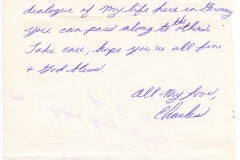 dialogue of my life here in Germany
you can pass along to the others.
Take care, hope you're all fine
+ God bless.
All My love,
Charles